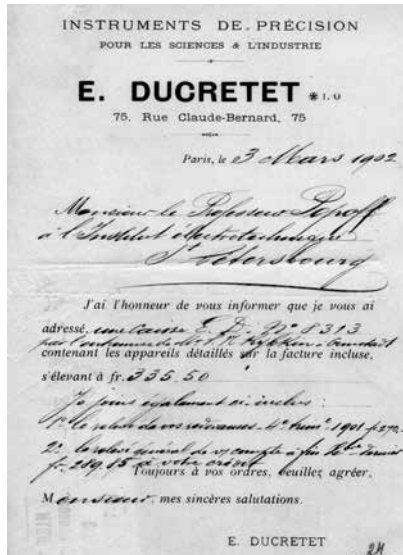 INSTRUMENTS DE PRÉCISION
POUR LES SCIENCES & L'INDUSTRIE
E. DUCRETET * I. O
75, Rue Claude-Bernard, 75
Paris, le 3 Mars 1902
Monsieur le Professeur Popoff
à l'Institut électrotechnique
St Petersbourg
J'ai l'honneur de vous informer que je vous ai
adressé, une caisse E. D. No 8313
par l'entremise de Mr
contenant les appareils détaillés sur la facture incluse,
s'élevant à fr. 335.50
Je joins également ci-inclus :
1° le relevé de vos redevances 4e trim. 1901 f. 270,
2° le relevé général de compte à fin dernier
fr. 289,05 à votre crédit
Toujours à vos ordres, veuillez agréer,
Monsieur, mes sincères salutations.
E. DUCRETET
24